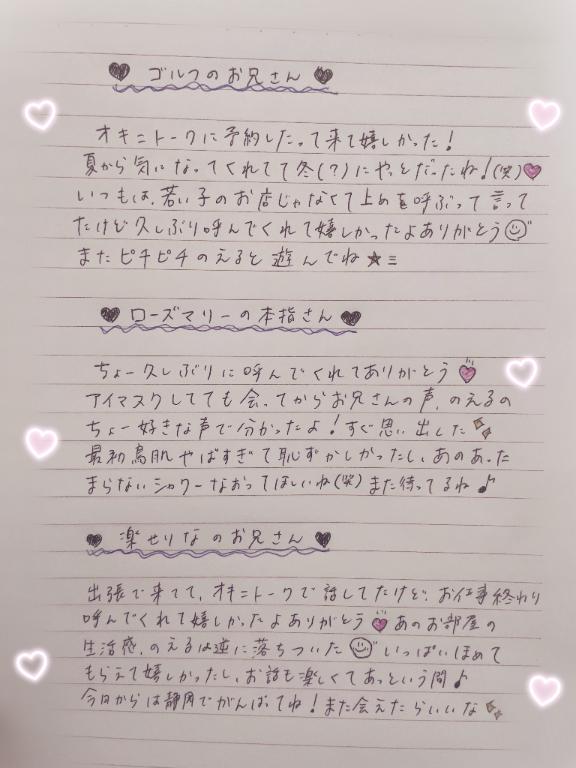 ♥ ゴルフのお兄さん ♥
オキニトークに予約したって来て嬉しかった!
夏から気になってくれてて冬(?)にやっとだったね!(笑)♥
いつもは、若い子のお店じゃなくて止めを呼ぶって言って
たけど久しぶり呼んでくれて嬉しかったよありがとう
またピチピチのえると遊んでね★≡
♥ ローズマリーの本指さん ♥
ちょー久しぶりに呼んでくれてありがとう♥
アイマスクしてても会ってからお兄さんの声、のえるの
ちょー好きな声で分かったよ!すぐ思い出した
最初鳥肌やばすぎて恥ずかしかったし、あのあった
まらないシャワーなおってほしいね(笑)また待ってるね♪
♥ 楽せりなのお兄さん ♥
出張で来てて、オキニトークで話してたけど、お仕事終わり
呼んでくれて嬉しかったよありがとう♥あのお部屋の
生活感、のえるは逆に落ちついた いっぱいほめて
もらえて嬉しかったし、お話も楽しくてあっという間♪
今日からは静岡でがんばってね!また会えたらいいな